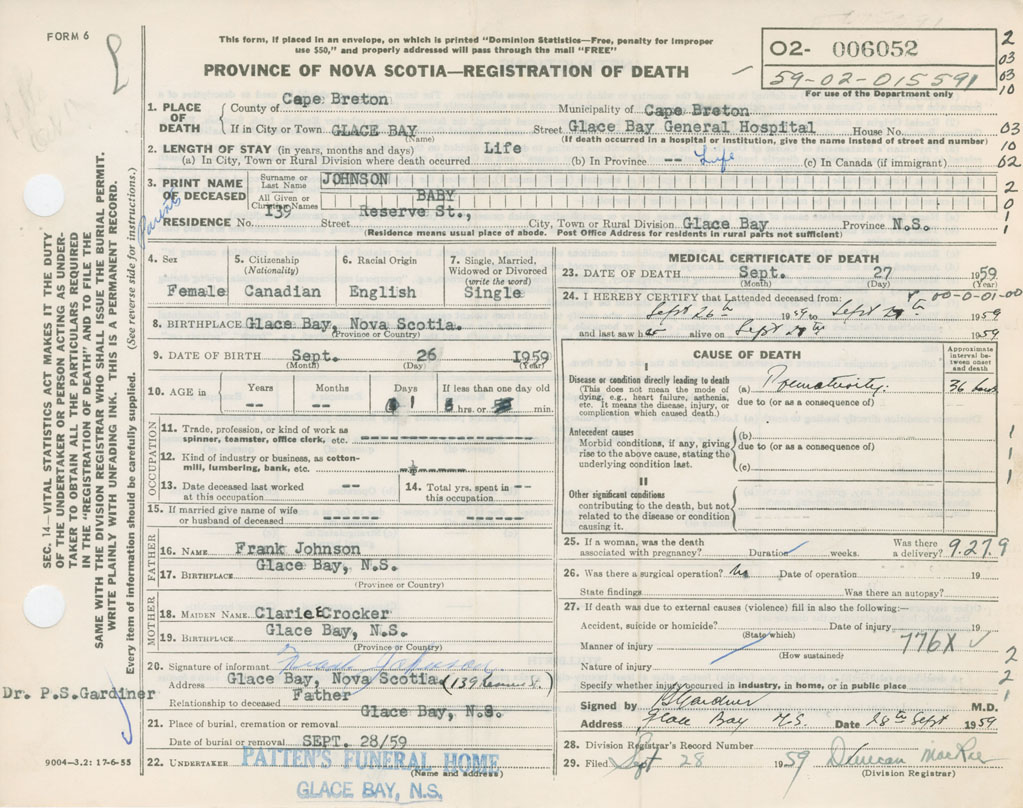 FORM 6
This form, if placed in an envelope, on which is printed "Dominion Statistics—Free, penalty for improper
use $50," and properly addressed will pass through the mail "FREE"
PROVINCE OF NOVA SCOTIA—REGISTRATION OF DEATH
02- 006052
59-02-015591
For use of the Department only
2
03
03
10
1. PLACE OF DEATH
County of Cape Breton Municipality of Cape Breton
If in City or Town GLACE BAY Street Glace Bay General Hospital House No.
(Name) (If death occurred in a hospital or institution, give the name instead of street and number)
03
10
02
2. LENGTH OF STAY (in years, months and days)
(a) In City, Town or Rural Division where death occurred Life (b) In Province -- Life (c) In Canada (if immigrant)
3. PRINT NAME OF DECEASED
Surname or Last Name JOHNSON
All Given or Christian Names BABY
2
0
1
1
Parents
RESIDENCE No. 139 Street Reserve St., City, Town or Rural Division Glace Bay Province N.S.
(Residence means usual place of abode. Post Office Address for residents in rural parts not sufficient)
SEC. 14—VITAL STATISTICS ACT MAKES IT THE DUTY
OF THE UNDERTAKER OR PERSON ACTING AS UNDER-
TAKER TO OBTAIN ALL THE PARTICULARS REQUIRED
IN THE "REGISTRATION OF DEATH" AND TO FILE THE
SAME WITH THE DIVISION REGISTRAR WHO SHALL ISSUE THE BURIAL PERMIT.
WRITE PLAINLY WITH UNFADING INK. THIS IS A PERMANENT RECORD.
Every item of information should be carefully supplied. (See reverse side for instructions.)
4. Sex
Female
5. Citizenship
(Nationality)
Canadian
6. Racial Origin
English
7. Single, Married,
Widowed or Divorced
(write the word)
Single
8. BIRTHPLACE Glace Bay, Nova Scotia.
(Province or Country)
9. DATE OF BIRTH Sept. 26 1959
(Month) (Day) (Year)
10. AGE in
Years Months Days If less than one day old
-- -- 1 hrs. or min.
OCCUPATION
11. Trade, profession, or kind of work as
spinner, teamster, office clerk, etc.
12. Kind of industry or business, as cotton-
mill, lumbering, bank, etc.
13. Date deceased last worked
at this occupation --
14. Total yrs. spent in
this occupation --
15. If married give name of wife
or husband of deceased
FATHER
16. NAME Frank Johnson
17. BIRTHPLACE Glace Bay, N.S.
(Province or Country)
MOTHER
18. MAIDEN NAME Clarie E Crocker
19. BIRTHPLACE Glace Bay, N.S.
(Province or Country)
20. Signature of informant Frank Johnson
Address Glace Bay, Nova Scotia (139 Reserve St.)
Relationship to deceased Father
Dr. P.S.Gardiner
21. Place of burial, cremation or removal Glace Bay, N.S.
Date of burial or removal SEPT. 28/59
22. UNDERTAKER PATTEN'S FUNERAL HOME
(Name and address)
GLACE BAY, N.S.
9004—3.2: 17-6-55
MEDICAL CERTIFICATE OF DEATH
23. DATE OF DEATH Sept. 27 1959
(Month) (Day) (Year)
00-0-01-00
24. I HEREBY CERTIFY that I attended deceased from:
Sept 26th 1959 to Sept 27th 1959
and last saw h alive on Sept 27th 1959
CAUSE OF DEATH
Approximate
interval be-
tween onset
and death
I
Disease or condition directly leading to death
(This does not mean the mode of
dying, e.g., heart failure, asthenia,
etc. It means the disease, injury, or
complication which caused death.)
(a) Prematurity. 36 hours
due to (or as a consequence of)
Antecedent causes
Morbid conditions, if any, giving
rise to the above cause, stating the
underlying condition last.
(b)
due to (or as a consequence of)
(c)
1
1
1
II
Other significant conditions
contributing to the death, but not
related to the disease or condition
causing it.
1
25. If a woman, was the death
associated with pregnancy? Duration weeks. Was there
a delivery? 9.27.9
26. Was there a surgical operation? No Date of operation 19
State findings Was there an autopsy?
27. If death was due to external causes (violence) fill in also the following:—
Accident, suicide or homicide? Date of injury 19
(State which)
Manner of injury 776X
(How sustained)
Nature of injury
Specify whether injury occurred in industry, in home, or in public place
2
2
1
Signed by PSGardiner M.D.
Address Glace Bay N.S. Date 28th Sept 1959
28. Division Registrar's Record Number
29. Filed Sept 28 1959 Duncan MacRae
(Division Registrar)